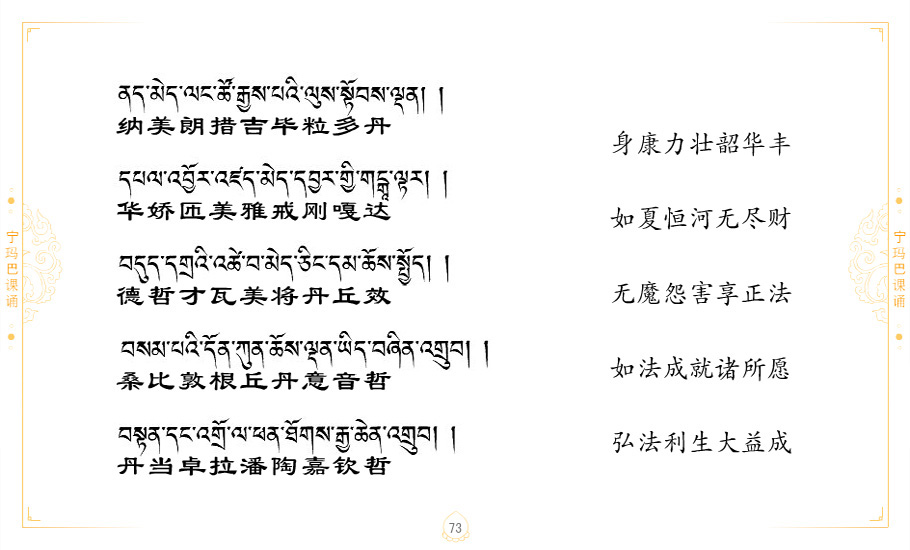 ནད་མེད་ལང་ཚོ་རྒྱས་པའི་ལུས་སྟོབས་ལྡན། །
纳美朗措吉毕粒多丹
身康力壮韶华丰
དཔལ་འབྱོར་འཛད་མེད་དབྱར་གྱི་གངྒཱ་ལྟར། །
华娇匝美雅戒刚嘎达
如夏恒河无尽财
བདུད་དགྲའི་འཚེ་བ་མེད་ཅིང་དམ་ཆོས་སྤྱོད། །
德哲才瓦美将丹丘效
无魔怨害享正法
བསམ་པའི་དོན་ཀུན་ཆོས་ལྡན་ཡིད་བཞིན་འགྲུབ། །
桑比敦根丘丹意音哲
如法成就诸所愿
བསྟན་དང་འགྲོ་ལ་ཕན་ཐོགས་རྒྱ་ཆེན་འགྲུབ། །
丹当卓拉潘陶嘉钦哲
弘法利生大益成
宁玛巴课诵
宁玛巴课诵
73